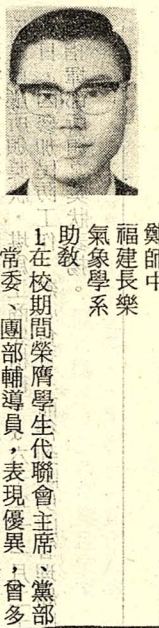 鄭師中
福建長樂
氣象學系
助教
1.在校期間榮膺學生代聯會主席、黨部
常委、團部輔導員，表現優異，曾多